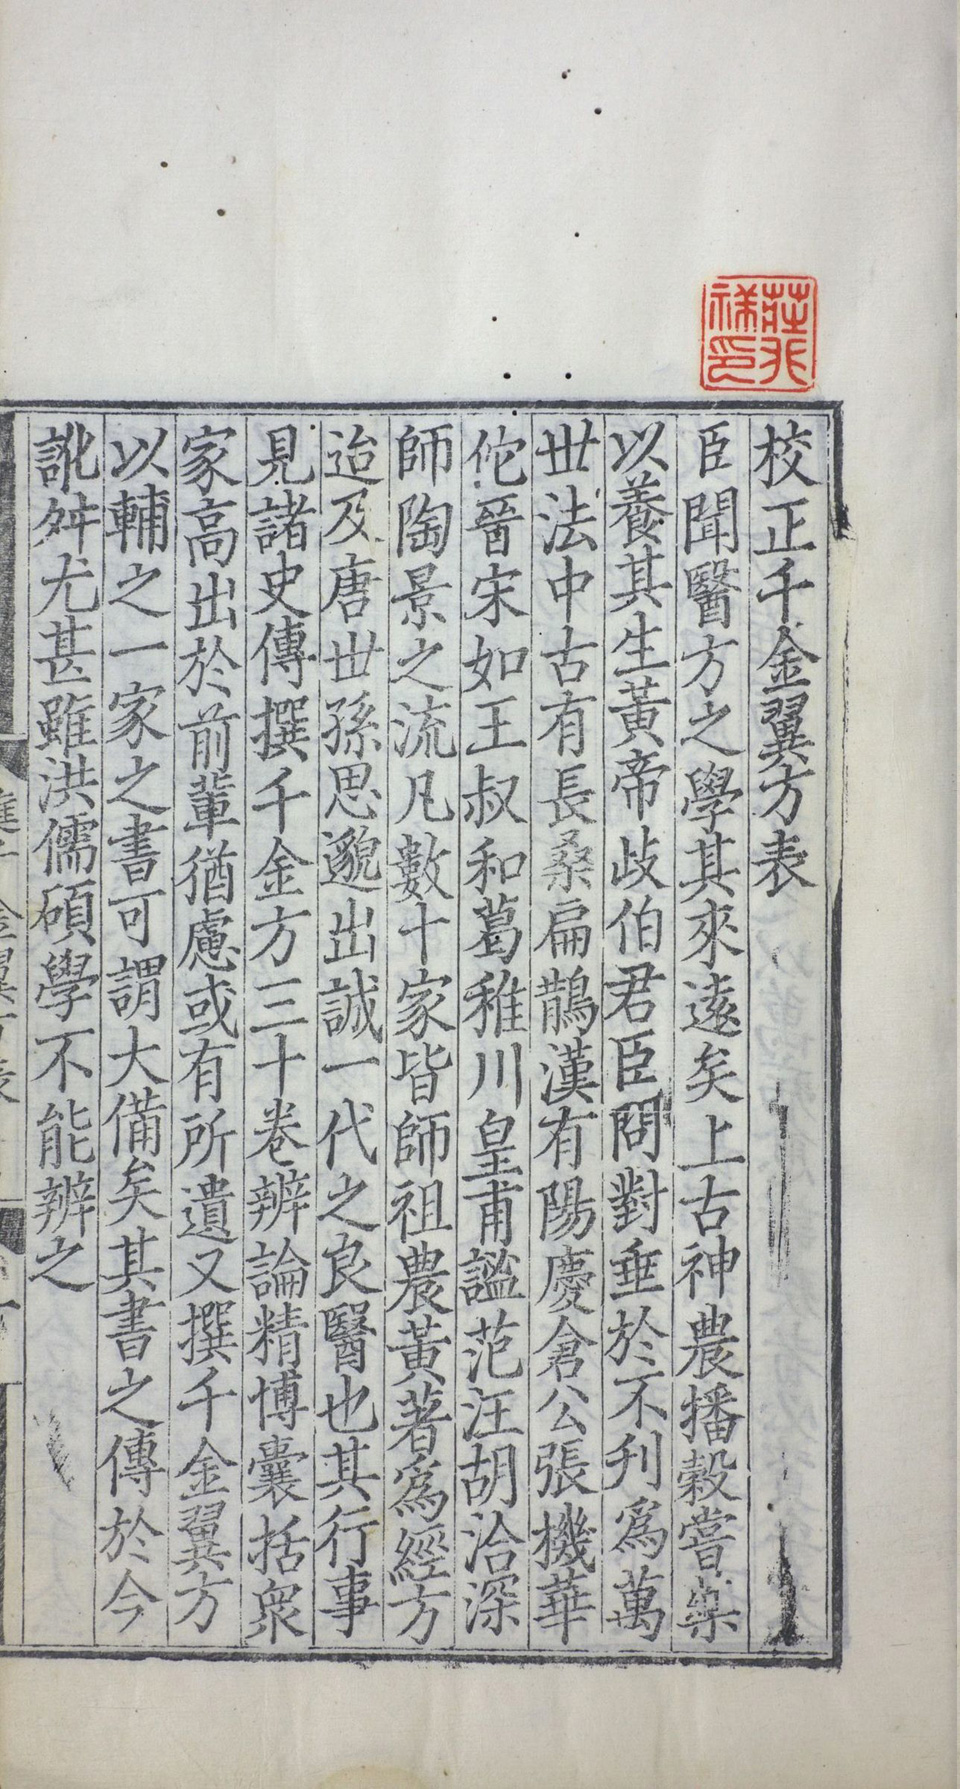 校正千金翼方表
臣聞醫方之學其來遠矣上古神農播穀嘗藥
以養其生黃帝歧伯君臣問對垂於不刋爲萬
世法中古有長桑扁鵲漢有陽慶倉公張機華
佗晉宋如王叔和葛稚川皇甫謐范汪胡洽深
師陶景之流凡數十家皆師祖農黃著爲經方
迨及唐世孫思邈出誠一代之良醫也其行事
見諸史傳撰千金方三十卷辨論精博囊括衆
家高出於前輩猶慮或有所遺又撰千金翼方
以輔之一家之書可謂大備矣其書之傳於今
訛舛尤甚雖洪儒碩學不能辨之